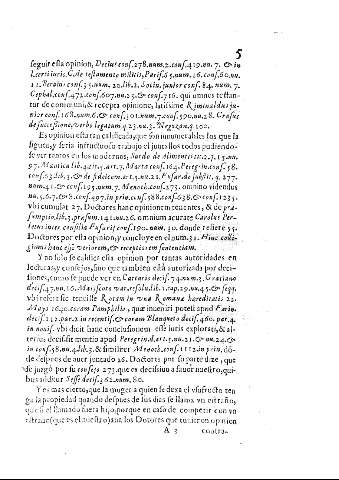 5
seguir esta opinion, Decius conf. 278. num. 2. conf. 419. nu. 7. & in
l. certi iuris. C. de testamento militis, Paris. 65. num. 16. conf. 60. nu.
11. conf. 35. num. 20. lib. 2. Socin. junior conf. 84. num. 7.
Cephal. conf. 472. conf. 607. nu. 25. & conf. 716. qui omnes testan-
tur de communi, & recepta opinione, latissime Riminaldus ju-
nior conf. 168. num. 6. & conf. 301. num. 7. conf. 590. nu. 28. Grassus
de successione, verbo legatum q. 23. nu. 3. q. 100.
Es opinion esta tan calificada, que son innumerables los que la
siguen, y seria infructuoso trabajo el juntallos todos pudiendo-
se ver tantos en los modernos, Surdo de alimentis
97. Mantica lib. 4. tit. 4. art. 7. Marta conf. 164. Peregrin. conf. 58.
conf. 63. lib. 3. & de fideicom. art. 15. nu. 21. Fusar. de substit. q. 277.
num. 41. & conf. 105. num. 7. Menoch. conf. 273. omnino videndus
nu. 5. 6. 7. & 8. conf. 497. in prin. conf. 588. conf. 638. & conf. 1235.
vbi cumulat 27. Doctores hanc opinionem tenentes, & de præ-
sumptio. lib. 3. præsum. 141. nu. 26. omnium acurate Carolus Per-
Doctores por esta opinion, y concluye en el num. 31. Hinc colli-
gimus hanc esse veriorem, & receptiorem sententiam.
Y no solo se califica esta opinion por tantas autoridades en
lecturas, y consejos, sino que tambien està autorizada por deci-
siones, como se puede ver en Caesario decis. 74. num. 5. Gratiano
decis. 47. nu. 16. Marescoto var. resolu. lib. 1. cap. 29. nu. 45. & seqq.
vbi refiere fue tenulile Rotam in vna Romana haereditatis 22.
Maij 1640. coram Pamphilio, que inueniri potest apud Farin.
decis. 112. par. 2. in recentis. & coram Blanqueto decis. 460. par. 4.
in nouis. vbi dicit hanc conclusionem esse iuris explorati, & al-
terius decisisse mentio apud Peregrin. d. art. 5. nu. 21. & nu. 24. &
in conf. 58. nu. 4. lib. 3. & similiter Menoch. conf. 1112. in prin. dò-
de despues de auer juntado 26. Doctores por su parte dize, que
se juzgò por su consejo 273. que es decisiuo a fauor nuestro, qui-
bus additur Sesse decis. 362. num. 80.
Y es mas cierto, que la muger a quien se dexa el vsufructo ten-
ga la propiedad quando despues de sus dias se llama vn estraño,
que si el llamado fuera hijo, porque en caso de competir con vn
estraño (que es el nuestro) aun los Dotores que tuuieron opinion
A 3 contra-